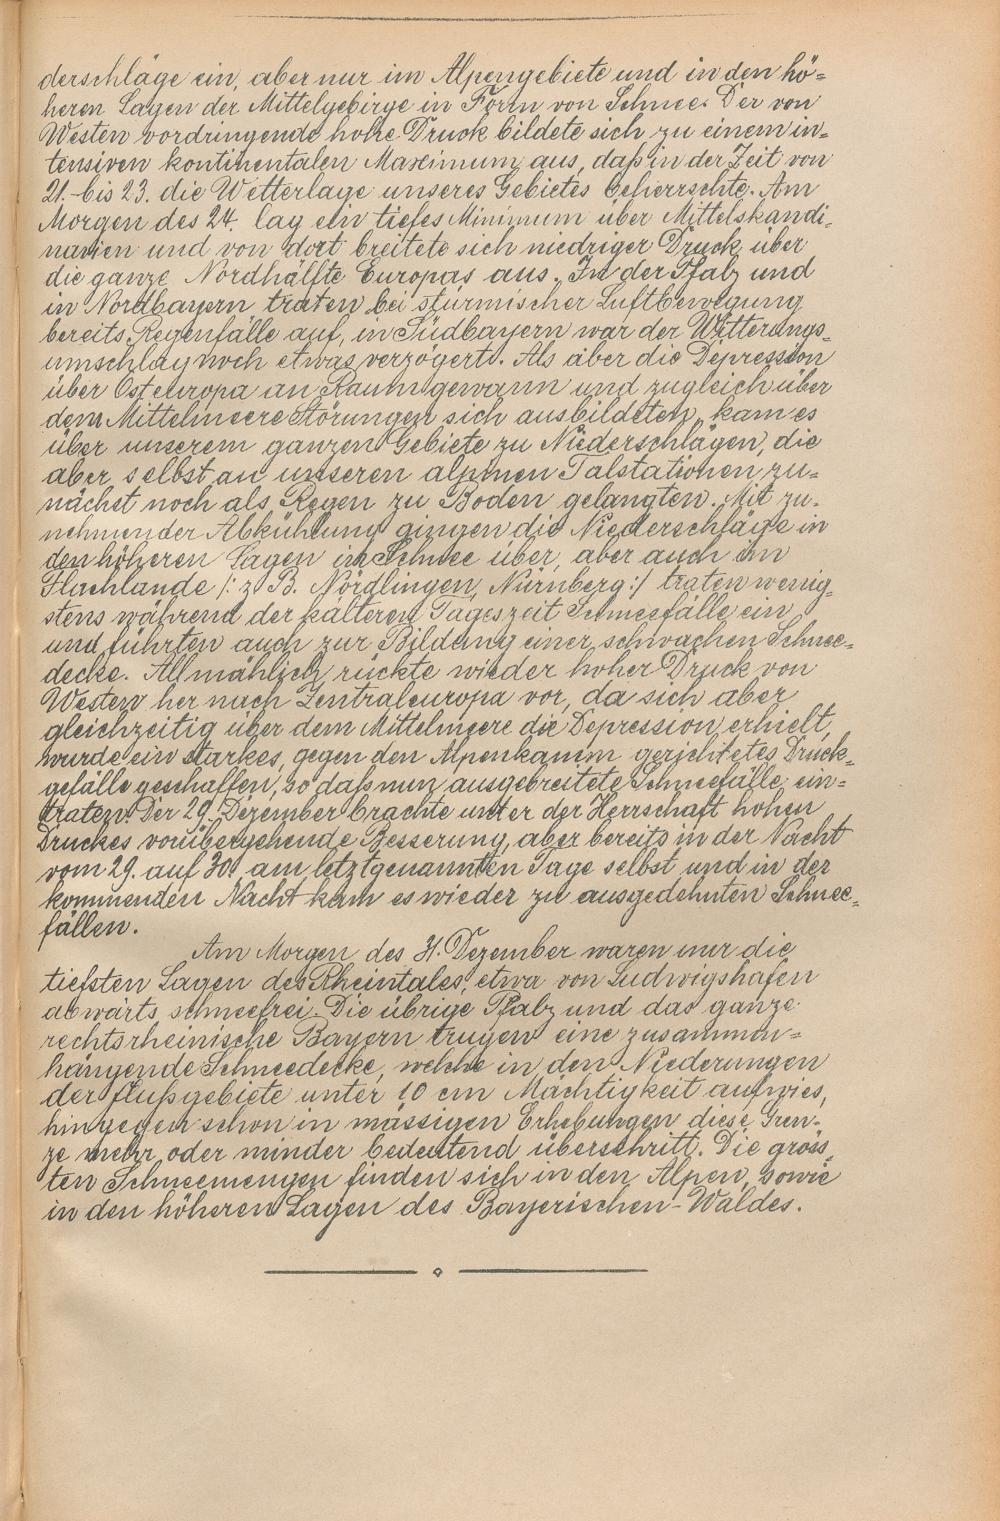 derschläge ein, aber nur im Alpengebiete und in den hö=
heren Lagen der Mittelgebirge in Form von Schnee. Der von
Westen vordringende hohe Druck bildete sich zu einem in=
tensiven kontinentalen Maximum aus, daß in der Zeit von
21.-bis 23. die Wetterlage unseres Gebietes beherrschte. Am
Morgen des 24. lag ein tiefes Minimum über Mittelskandi=
navien und von dort breitete sich niedriger Druck über
die ganze Nordhälfte Europas aus. In der Pfalz und
in Nordbayern traten bei stürmischer Luftbewegung
bereits Regenfälle auf, in Südbayern war der Witterungs=
umschlag noch etwas verzögert. Als aber die Depression
über Osteuropa an Raum gewann und zugleich über
dem Mittelmeere Störungen sich ausbildeten, kam es
über unserem ganzen Gebiete zu Niederschlägen, die
aber selbst an unseren alpinen Talstationen zu=
nächst noch als Regen zu Boden gelangten. Mit zu=
nehmender Abkühlung gingen die Niederschläge in
den höheren Lagen in Schnee über, aber auch im
Flachlande /: z. B. Nördlingen, Nürnberg :/ traten wenig=
stens während der kälteren Tageszeit Schneefälle ein
und führten auch zur Bildung einer schwachen Schnee=
decke. Allmählich rückte wieder hoher Druck von
Westen her nach Zentraleuropa vor, da sich aber
gleichzeitig über dem Mittelmeere die Depression erhielt,
wurde ein starkes, gegen den Alpenkamm gerichtetes Druck=
gefälle geschaffen, so daß nun ausgebreitete Schneefälle ein=
traten. Der 29. Dezember brachte unter der Herrschaft hohen
Druckes vorübergehende Besserung, aber bereits in der Nacht
vom 29. auf 30., am letztgenannten Tage selbst und in der
kommenden Nacht kam es wieder zu ausgedehnten Schnee=
fällen.
Am Morgen des 31. Dezember waren nur die
tiefsten Lagen des Rheintales, etwa von Ludwigshafen
abwärts schneefrei. Die übrige Pfalz und das ganze
rechtsrheinische Bayern trugen eine zusammen=
hängende Schneedecke, welche in den Niederungen
der Flußgebiete unter 10 cm Mächtigkeit aufwies,
hingegen schon in mässigen Erhebungen diese Gren=
ze mehr oder minder bedeutend überschritt. Die gröss=
ten Schneemengen finden sich in den Alpen, sowie
in den höheren Lagen des Bayerischen-Waldes.